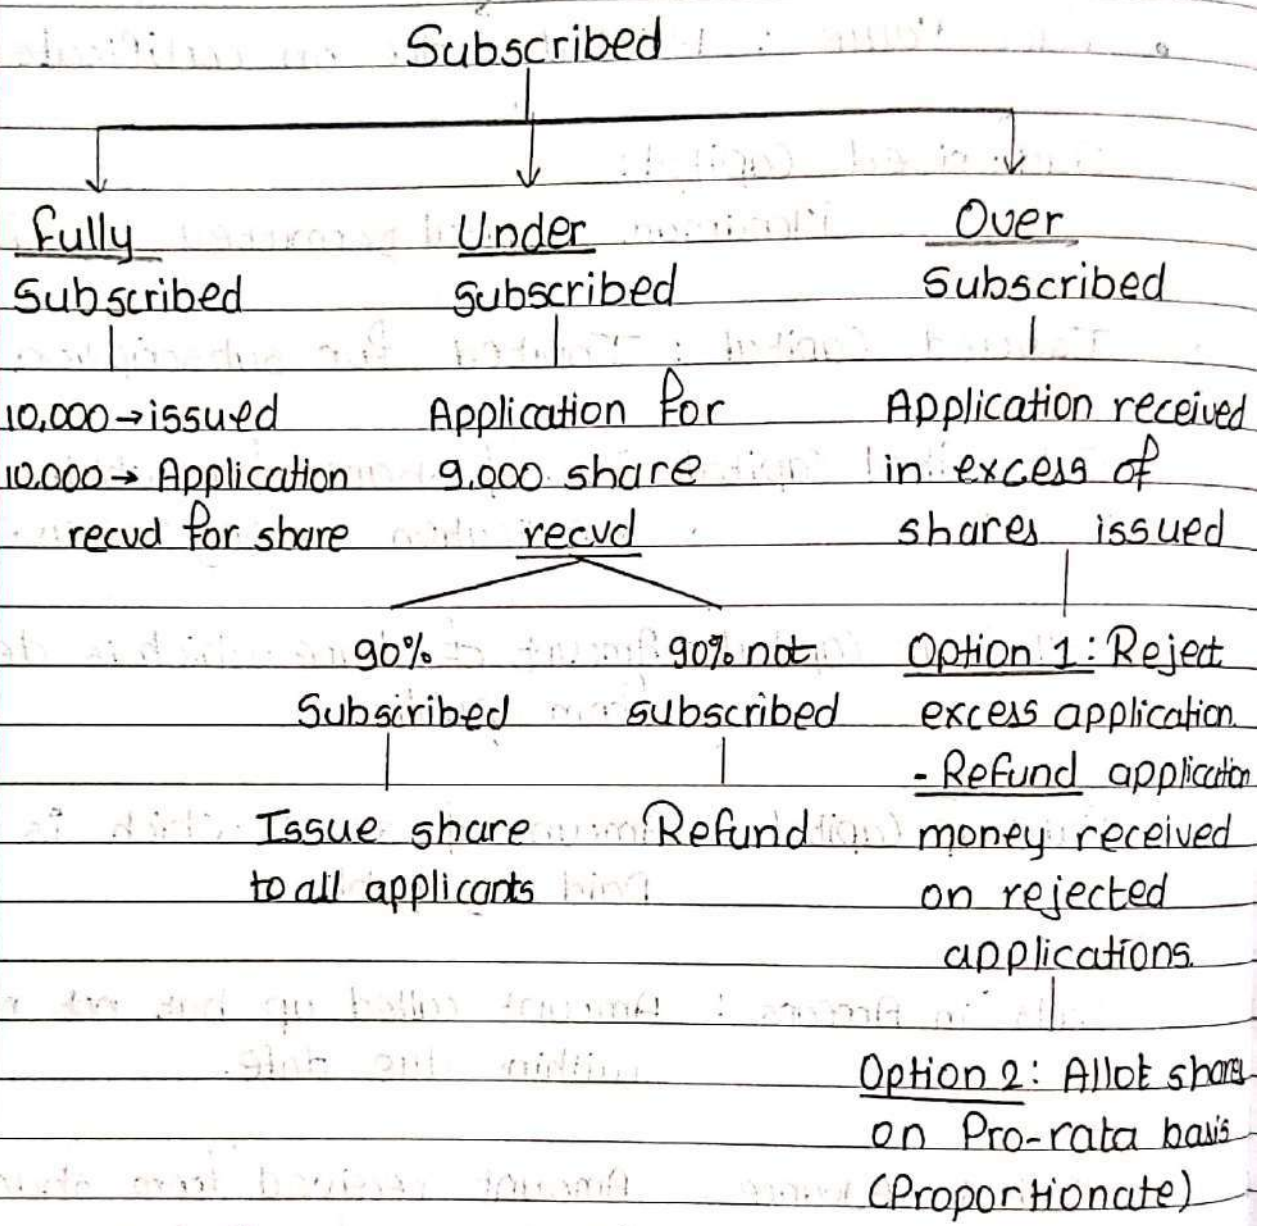 Subscribed
Fully
Subscribed
10,000→issued
10,000→ Application
recvd for share
Under
Subscribed
Application for
9,000 share
recvd
90%
Subscribed
Issue share
to all applicants
90% not
subscribed
Refund
Over
Subscribed
Application received
in excess of
shares issued
Option 1: Reject
excess application
- Refund application
money received
on rejected
applications.
Option 2: Allot shares
on Pro-rata basis
(Proportionate)